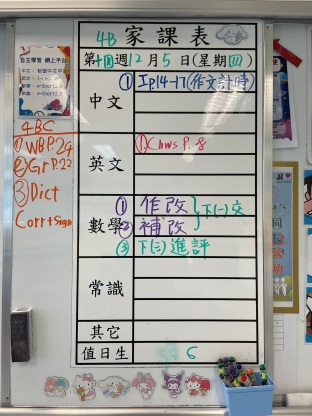 4B 家課表
第十四週12月5日(星期四)
中文
① Ip.14-17(作文計時)
英文
①Chws P.8
數學
① 作改
② 補改
} 下(一)交
③ 下(三)進評
常識
其它
值日生 6
自主學習 網上平台
4BC
①WBP.24
②GrP.22
③Dict
Corr+Sign